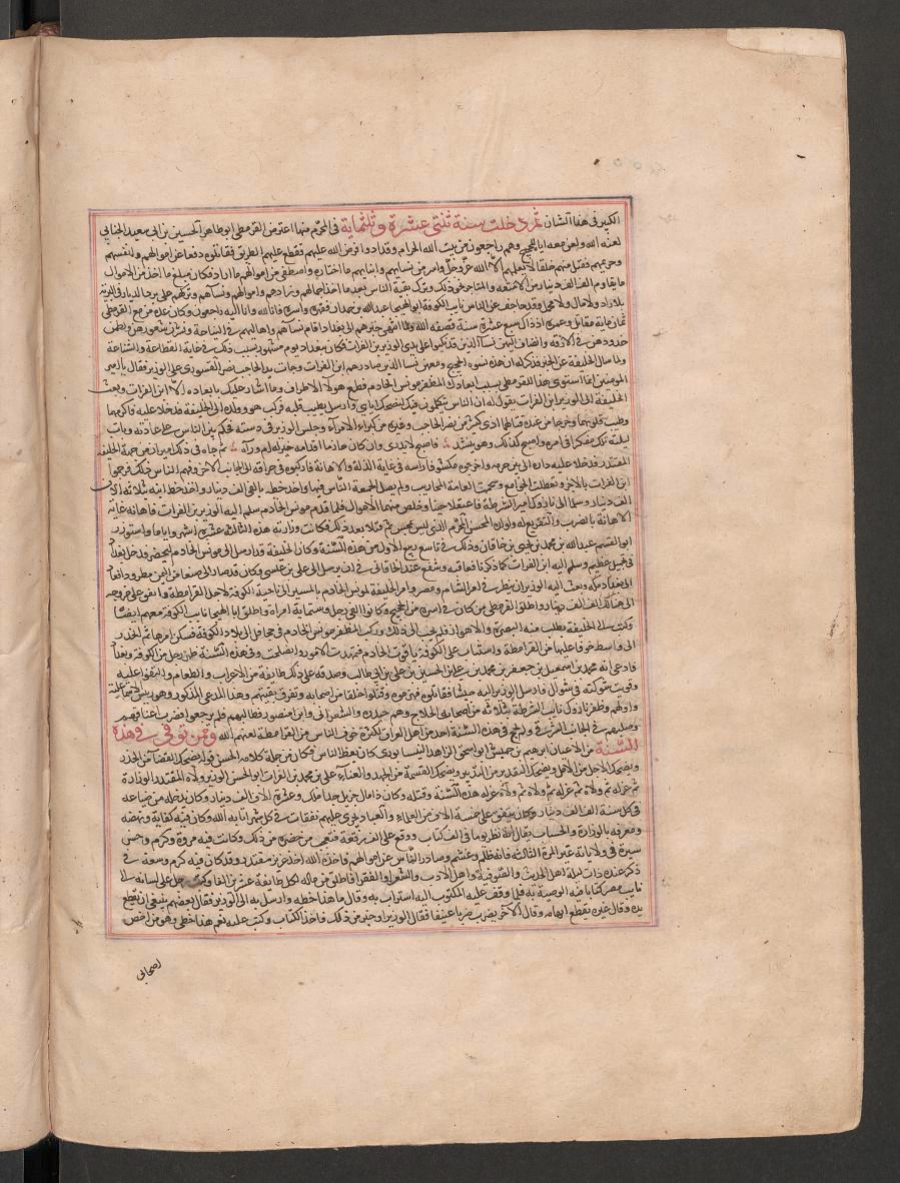 الكبير في هذا الشان ثم دخلت سنة ثنتي عشرة وثلثماية في المحرم منها اعترض القرمطي ابو طاهر الحسين بن ابي سعيد الجنابي
لعنه الله ولعن معه اباه الحجيج وهم راجعون من بيت الله الحرام وقد ادوا فرض الله عليهم فقطع عليهم الطريق فقاتلوه دفعا عن اموالهم وانفسهم
وحريمهم فقتل منهم خلقا لا يعلمهم الا الله عز وجل واسر من نسايهم وابنايهم ما اختاره واصطفى من اموالهم ما اراد فكان مبلغ ما اخذ من الاموال
ما يقاوم الف الف دينار ومن الامتعة والمتاجر نحو ذلك وترك بقية الناس بعد ما اخذ جمالهم وزادهم واموالهم ونساهم وتركهم على بعد الديار في البرية
بلا زاد ولا مال ولا محمل وقد جاحف عن الناس نايب الكوفة ابو الهيجا عبد الله بن حمدان فهزمه واسره فانا لله وانا اليه راجعون وكان عدة من مع القرمطي
ثمان ماية مقاتل وعمره اذ ذاك سبع عشرة سنة قصفه الله ولما انتهى خبرهم الى بغداد اقام نساهم واهاليهم في النياحة ونشرن شعورهن ولطمن
خدودهن في الازقة وانضاف اليهن نسا الذين نكبوا على يدي الوزير بن الفرات فكان ببغداد يوم مشهود بسبب ذلك في غاية الفظاعة والشناعة
ولما سال الخليفة عن الخبر فذكر له ان هذه نسوة الحجيج ومعهن نسا الذين صادرهم ابن الفرات وجات يد الحاجب نصر القشوري على الوزير فقال يا امير
المومنين انما استولى هذا القرمطي بسبب ابعادك المظفر مونس الخادم فطمع هولا في الاطراف وما اشار عليك بابعاده الا ابن الفرات وبعث
الخليفة الى الوزير ابن الفرات يقول له ان الناس يتكلمون فيك لنصحك اياي وارسل يطيب قلبه فركب هو وولده الى الخليفة فدخلا عليه فاكرمهما
وطيب قلوبهما وخرجا من عنده فنالهما اذى كثير من نصر الحاجب وغيره من كبراء الامراء وجلس الوزير في دسته فحكم بين الناس على عادته وبات
ليلته تلك مفكرا في امره واصبح كذلك وهو ينشد فاصبح لا يدري وان كان حازما اقدامه خير له ام وراه ثم جاه في ذلك اميران من جهة الخليفة
المقتدر فدخلا عليه داره الى بين حرمه واخرجوه مكشوفا راسه في غاية الذلة والاهانة فاركبوه في حراقة الى الجانب الاخر وفهم الناس ذلك فرجموا
ابن الفرات بالاجر وتعطلت الجوامع وسخمت العامة المحاريب ولم يصل الجمعة الناس فيها واخذ خطه بالفي الف دينار واخذ خط ابنه بثلاثة الاف
الف دينار وسلما الى نازوك امير الشرطة فاعتقلا حينا وتخلص منهما الاموال فلما قدم مونس الخادم سلم اليه الوزير بن الفرات فاهانه غاية
الاهانة بالضرب والتقريع له ولولده المحسن المجرم الذي ليس بمحسن ثم قتلا بعد ذلك فكانت وزارته هذه الثالثة عشرة اشهر واياما واستوزر
ابو القسم عبد الله بن محمد بن يحيى بن خاقان وذلك في تاسع ربيع الاول من هذه السنة وكان الخليفة قد ارسل الى مونس الخادم ليحضر ودخل بغداد
في تجمل عظيم وسلم اليه ابن الفرات كما ذكرنا فعاقبه وشفع عند الخاقاني في ان يرسل الى علي بن عيسى وكان قد صار الى صنعا من اليمن مطرودا فعاد
الى مكة وبعث اليه الوزير ان ينظر في امر الشام ومصر وامر الخليفة لمونس الخادم بالمسير الى ناحية الكوفة لاجل القرامطة وانفق على خروجه
الى هنالك الف الف دينار واطلق القرمطي من كان في اسره من الحجيج وكانوا الفي رجل وخمسماية امراة واطلق ابا الهيجا نايب الكوفة معهم ايضا
وكتب الى الخليفة يطلب منه البصرة والاهواز فلم يجب الى ذلك وركب المظفر مونس الخادم في جحافل الى بلاد الكوفة فسكن امرها ثم انحدر
الى واسط خوفا عليها من القرامطة واستناب على الكوفة ياقوت الخادم فتمهدت الامور وانصلحت وفي هذه السنة ظهر رجل بين الكوفة وبغداد
فادعى انه محمد بن اسمعيل بن جعفر بن محمد بن علي بن الحسين بن علي بن ابي طالب وصدقه على ذلك طايفة من الاعراب والطغام والتفوا عليه
وقويت شوكته في شوال فارسل الوزير اليه جيشا فقاتلوه فهزموه وقتلوا خلقا من اصحابه وتفرق بقيتهم وهذا المدعي المذكور وهو رييس الاسماعيلية
واولهم وظفر نازوك نايب الشرطة بثلاثة من اصحاب الحلاج وهم حيدرة والشعراني وابن منصور فطالبهم فلم يرجعوا فضرب اعناقهم
وصلبهم في الجانب الشرقي ولم يحج في هذه السنة احد من اهل العراق لكثرة خوف الناس من القرامطة لعنهم الله وممن توفي في هذه
السنة من الاعيان ابرهيم بن خميش ابو اسحق الزاهد النيسابوري كان يعظ الناس فكان من جملة كلامه الحسن قوله يضحك القضا من الحذر
ويضحك الاجل من الامل ويضحك التقدير من التدبير ويضحك القسمة من الجهد والعنا علي بن محمد بن الفرات ابو الحسن الوزير ولاه المقتدر الوزارة
ثم عزله ثم ولاه ثم عزله ثم ولاه ثم عزله هذه السنة وقتله وكان ذا مال جزيل جدا ملك وعشرة الاف الف دينار وكان يدخله من ضياعه
في كل سنة الف الف دينار وكان ينفق على خمسة الاف من العلماء والعباد تجري عليهم نفقات في كل شهر اثابه الله وكان فيه كفاية ونهضة
ومعرفه بالوزارة والحساب يقال انه نظر يوما في الف كتاب ووقع على الف رقعة فتعجب من حضره من ذلك وكانت فيه مروة وكرم وحسن
سيرة في ولاياته غير المرة الثالثة فانه ظلم وغشم وصادر الناس عن اموالهم فاخذه الله اخذ عزيز مقتدر وقد كان فيه كرم وسعة في
ذكر عنده ذات ليلة اهل الحديث والصوفية واهل الادب والشعراء والفقرا فاطلق من ماله لكل طايفة عشرين الفا وكتب رجل على لسانه الى
نايب مصر كتابا فيه الوصية به فلما وقف عليه المكتوب اليه استراب به وقال ما هذا خطه وارسل به الى الوزير فقال بعضهم ينبغي ان تقطع
يده وقال غيره يقطع ابهامه وقال الاخر يضرب ضربا عنيفا فقال الوزير او خير من ذلك فاخذ الكتاب وكتب عليه نعم هذا خطي وهو من اخص
اصحابي